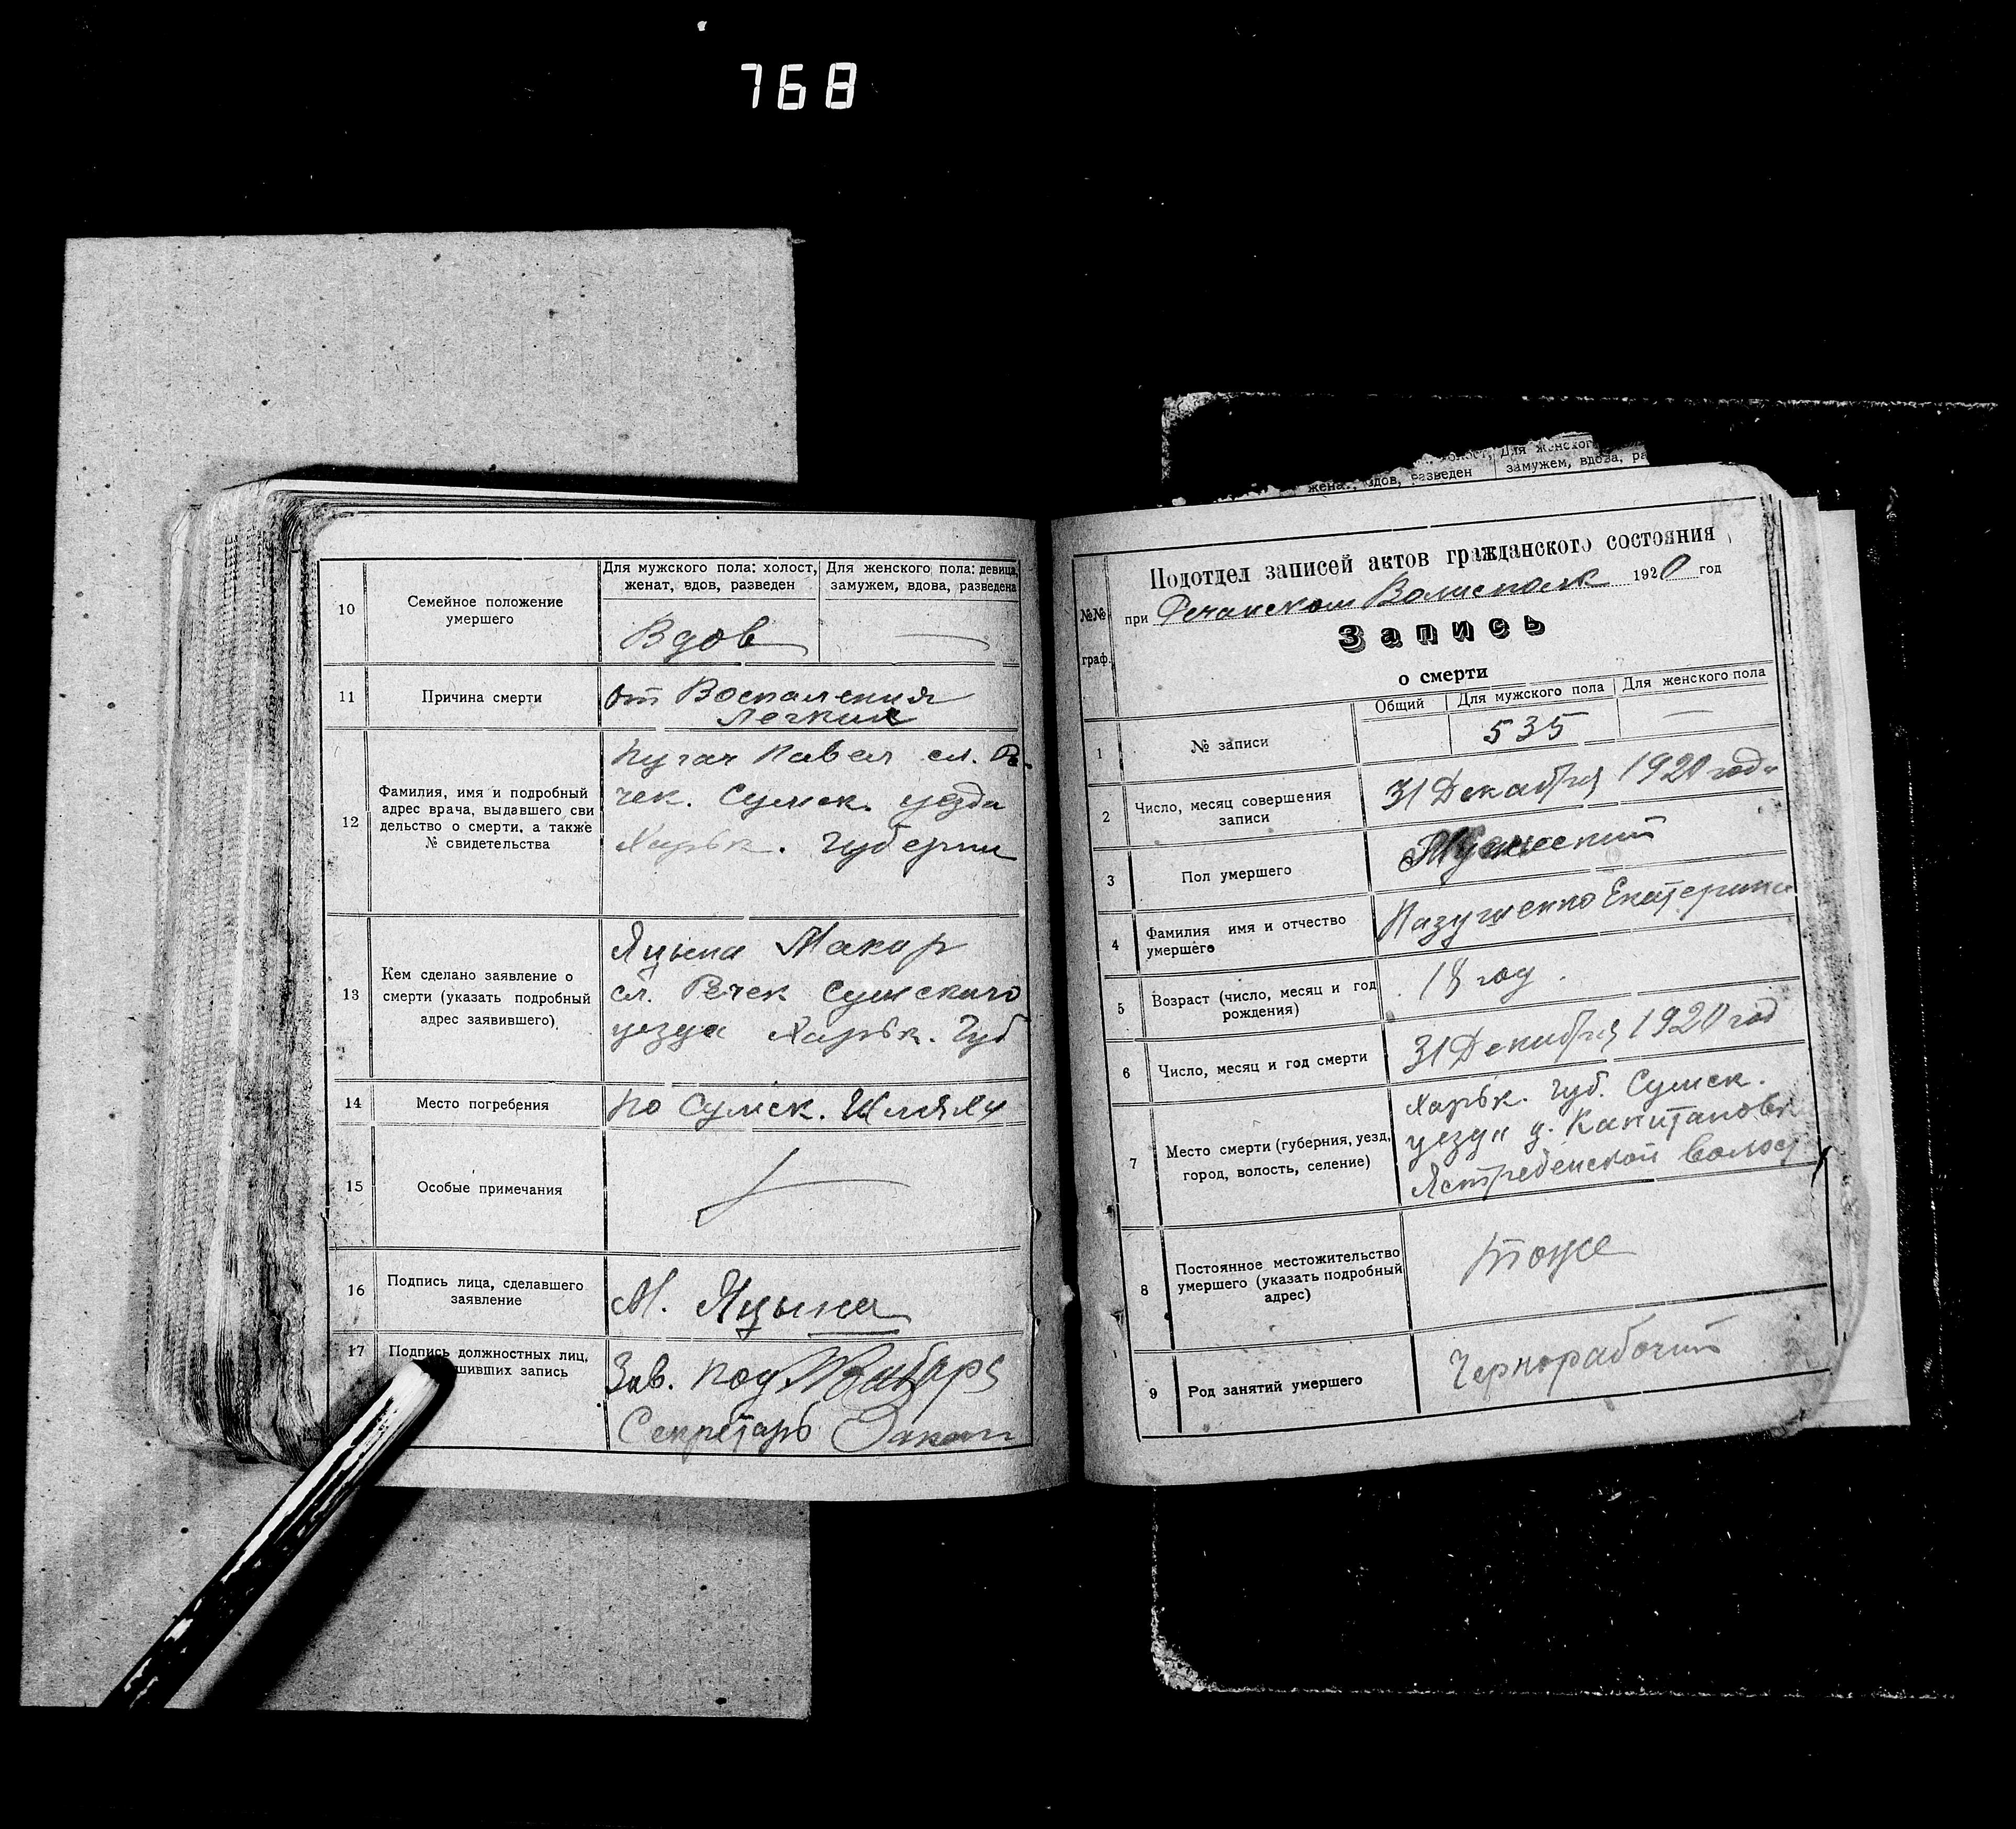 768
10
Семейное положение
умершего
Для мужского пола: холост,
женат, вдов, разведен
Для женского пола: девица,
замужем, вдова, разведена
Вдов
11
Причина смерти
от Воспаления
Легких
12
Фамилия, имя и подробный
адрес врача, выдавшего сви
дельство о смерти, а также
№ свидетельства
Пугач Павел сл. Рѣ-
чек. Сумск. уезда
Харьк. Губерни
13
Кем сделано заявление о
смерти (указать подробный
адрес заявившего)
Яцына Макар
сл. Речек Сумского
уезда Харьк. Губ
14
Место погребения
по Сумск. Шляху
15
Особые примечания
16
Подпись лица, сделавшего
заявление
М. Яцына
17
Подпись должностных лиц,
шивших запись
Зав. под
Секретарь
жена, вдов, разведен
Для женского
замужем, вдова, ра
№№
граф.
Подотдел записей актов гражданского состояния
при Речанском 1920 год
Запись
о смерти
Общий
Для мужского пола
Для женского пола
1
№ записи
535
2
Число, месяц совершения
записи
31 Декабря 1920 года
3
Пол умершего
Мужский
4
Фамилия имя и отчество
умершего
Екатерина
5
Возраст (число, месяц и год
рождения)
18 год.
6
Число, месяц и год смерти
31 Декабря 1920 год
7
Место смерти (губерния, уезд,
город, волость, селение)
Харьк. Губ. Сумск.
уезда д. Капитановк
Ястребенской волост
8
Постоянное местожительство
умершего (указать подробный
адрес)
тоже
9
Род занятий умершего
Чернорабочий